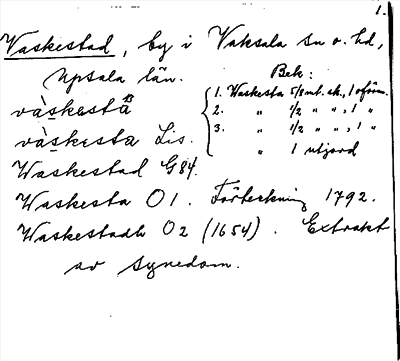 1.
Waskestad, by i Vaksala sn o. hd,
Upsala län. Bek:
vàskestä 1. Waskesta 5/8 mt. sk., 1 oförm.
2. " 1/2 " " , 1 "
vàskesta Lis. 3. " 1/2 " " , 1 "
Waskestad G84. " 1 utjord
Waskesta O1. Förteckning 1792.
Waskestadh O2 (1654). Extrakt
av synedom.